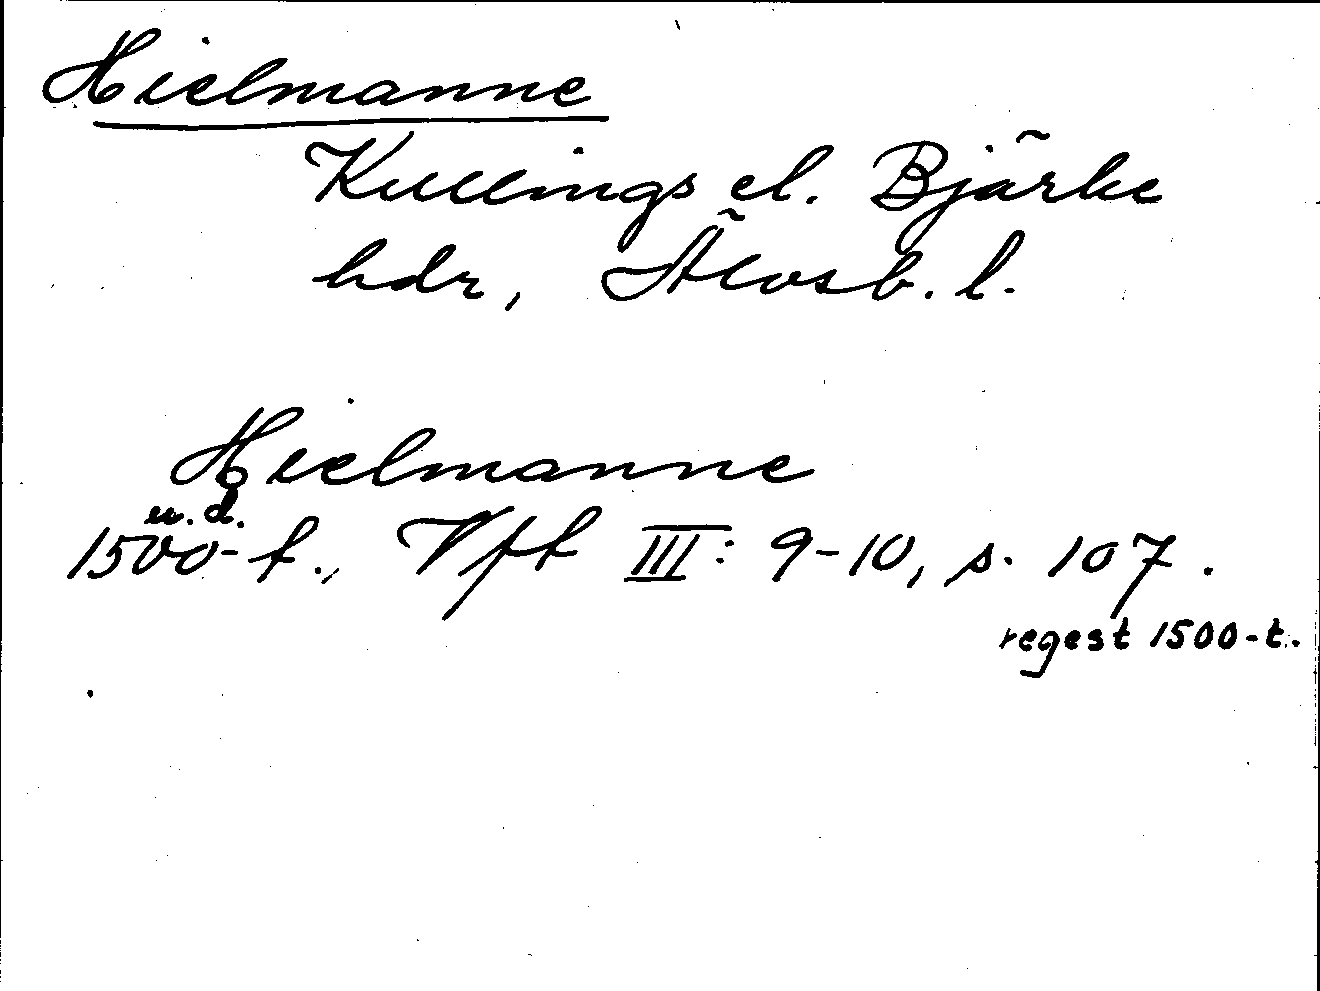 Hielmanne
Kullings el. Bjärke
hdr, Älvsb. l.
Hielmanne
u.d.
1500-t., Vft III: 9-10, s. 107.
regest 1500-t.